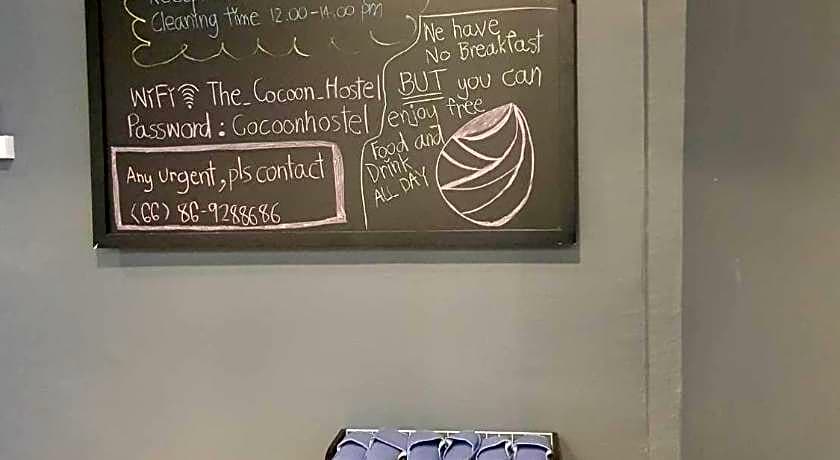 Cleaning time 12.00-14.00 pm
WiFi The_Cocoon_Hostel
Password : Cocoonhostel
Any Urgent, pls contact
(66) 86-9288686
We have
No Breakfast
BUT you can
enjoy free
Food and
Drink
ALL DAY